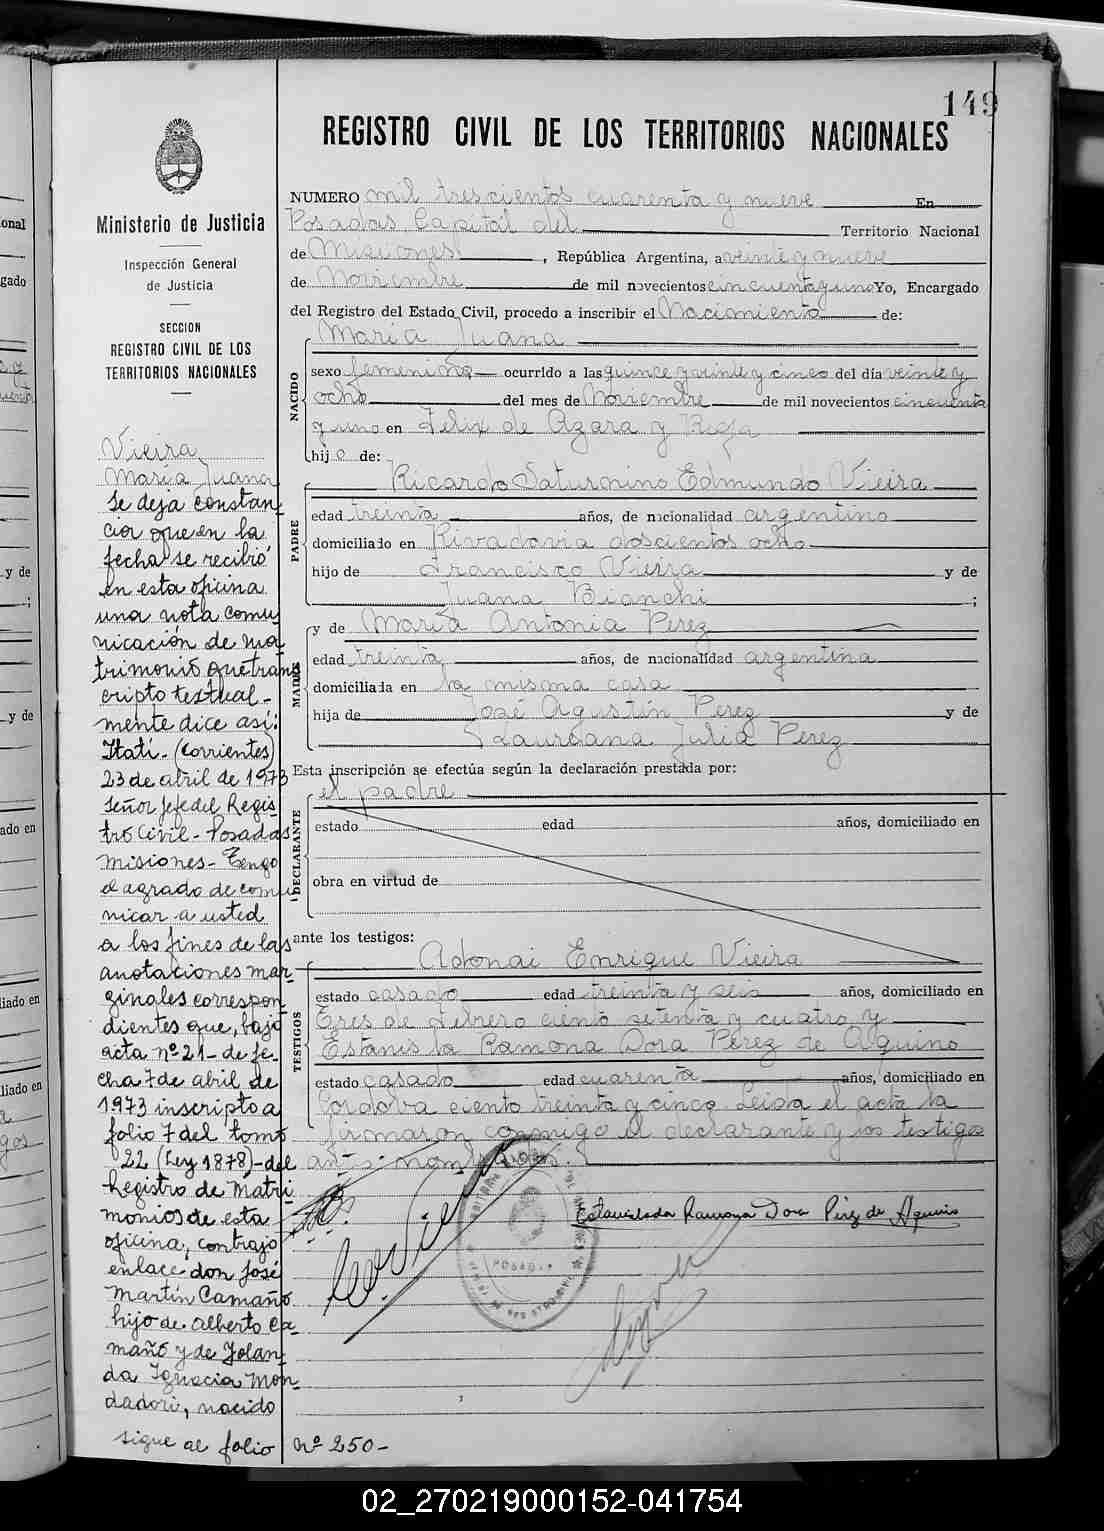 149
REGISTRO CIVIL DE LOS TERRITORIOS NACIONALES
NUMERO mil trescientos cuarenta y nueve En
Posadas Capital del Territorio Nacional
de Misiones, República Argentina, a veinte y nueve
de Noviembre de mil novecientos cincuenta y uno Yo, Encargado
del Registro del Estado Civil, procedo a inscribir el Nacimiento de:
María Juana
NACIDO
sexo femenino ocurrido a las quince y veinte y cinco del día veinte y
ocho del mes de Noviembre de mil novecientos cincuenta
y uno en Felix de Azara y Rioja
hijo de:
Ricardo Saturnino Edmundo Vieira
PADRE
edad treinta años, de nacionalidad argentino
domiciliado en Rivadavia doscientos ocho
hijo de Francisco Vieira y de
Juana Bianchi ;
y de María Antonia Perez
MADRE
edad treinta años, de nacionalidad argentina
domiciliada en la misma casa
hija de José Agustín Perez y de
Laureana Julia Perez
Esta inscripción se efectúa según la declaración prestada por:
el padre
DECLARANTE
estado edad años, domiciliado en
obra en virtud de
ante los testigos:
Adonai Enrique Vieira
TESTIGOS
estado casado edad treinta y seis años, domiciliado en
Tres de Febrero ciento setenta y cuatro y
Estanisla Ramona Dora Perez de Aquino
estado casado edad cuarenta años, domiciliado en
Cordova ciento treinta y cinco. Leida el acta la
firmaron conmigo el declarante y los testigos
antes nombrados.
Estanislada Ramona Dora Pérez de Aquino
POSADAS
Ministerio de Justicia
Inspección General
de Justicia
SECCION
REGISTRO CIVIL DE LOS
TERRITORIOS NACIONALES
Vieira
María Juana
Se deja constan
cia que en la
fecha se recibió
en esta oficina
una nota comu
nicación de ma
trimonio que trans
cripto textual-
mente dice así:
Itatí - (Corrientes)
23 de abril de 1973
Señor Jefe del Regis
tro Civil - Posadas
Misiones - Tengo
el agrado de comu
nicar a usted
a los fines de las
anotaciones mar-
ginales correspon
dientes que, bajo
acta nº 21 - de fe-
cha 7 de abril de
1973 inscripto a
folio 7 del tomo
22 (Ley 1878) - del
Registro de Matri
monios de esta
oficina, contrajo
enlace don José
Martín Camaño
hijo de Alberto Ca
maño y de Yolan
da Ignacia Mon-
dadori, nacido
sigue al folio nº 250 -
02_270219000152-041754